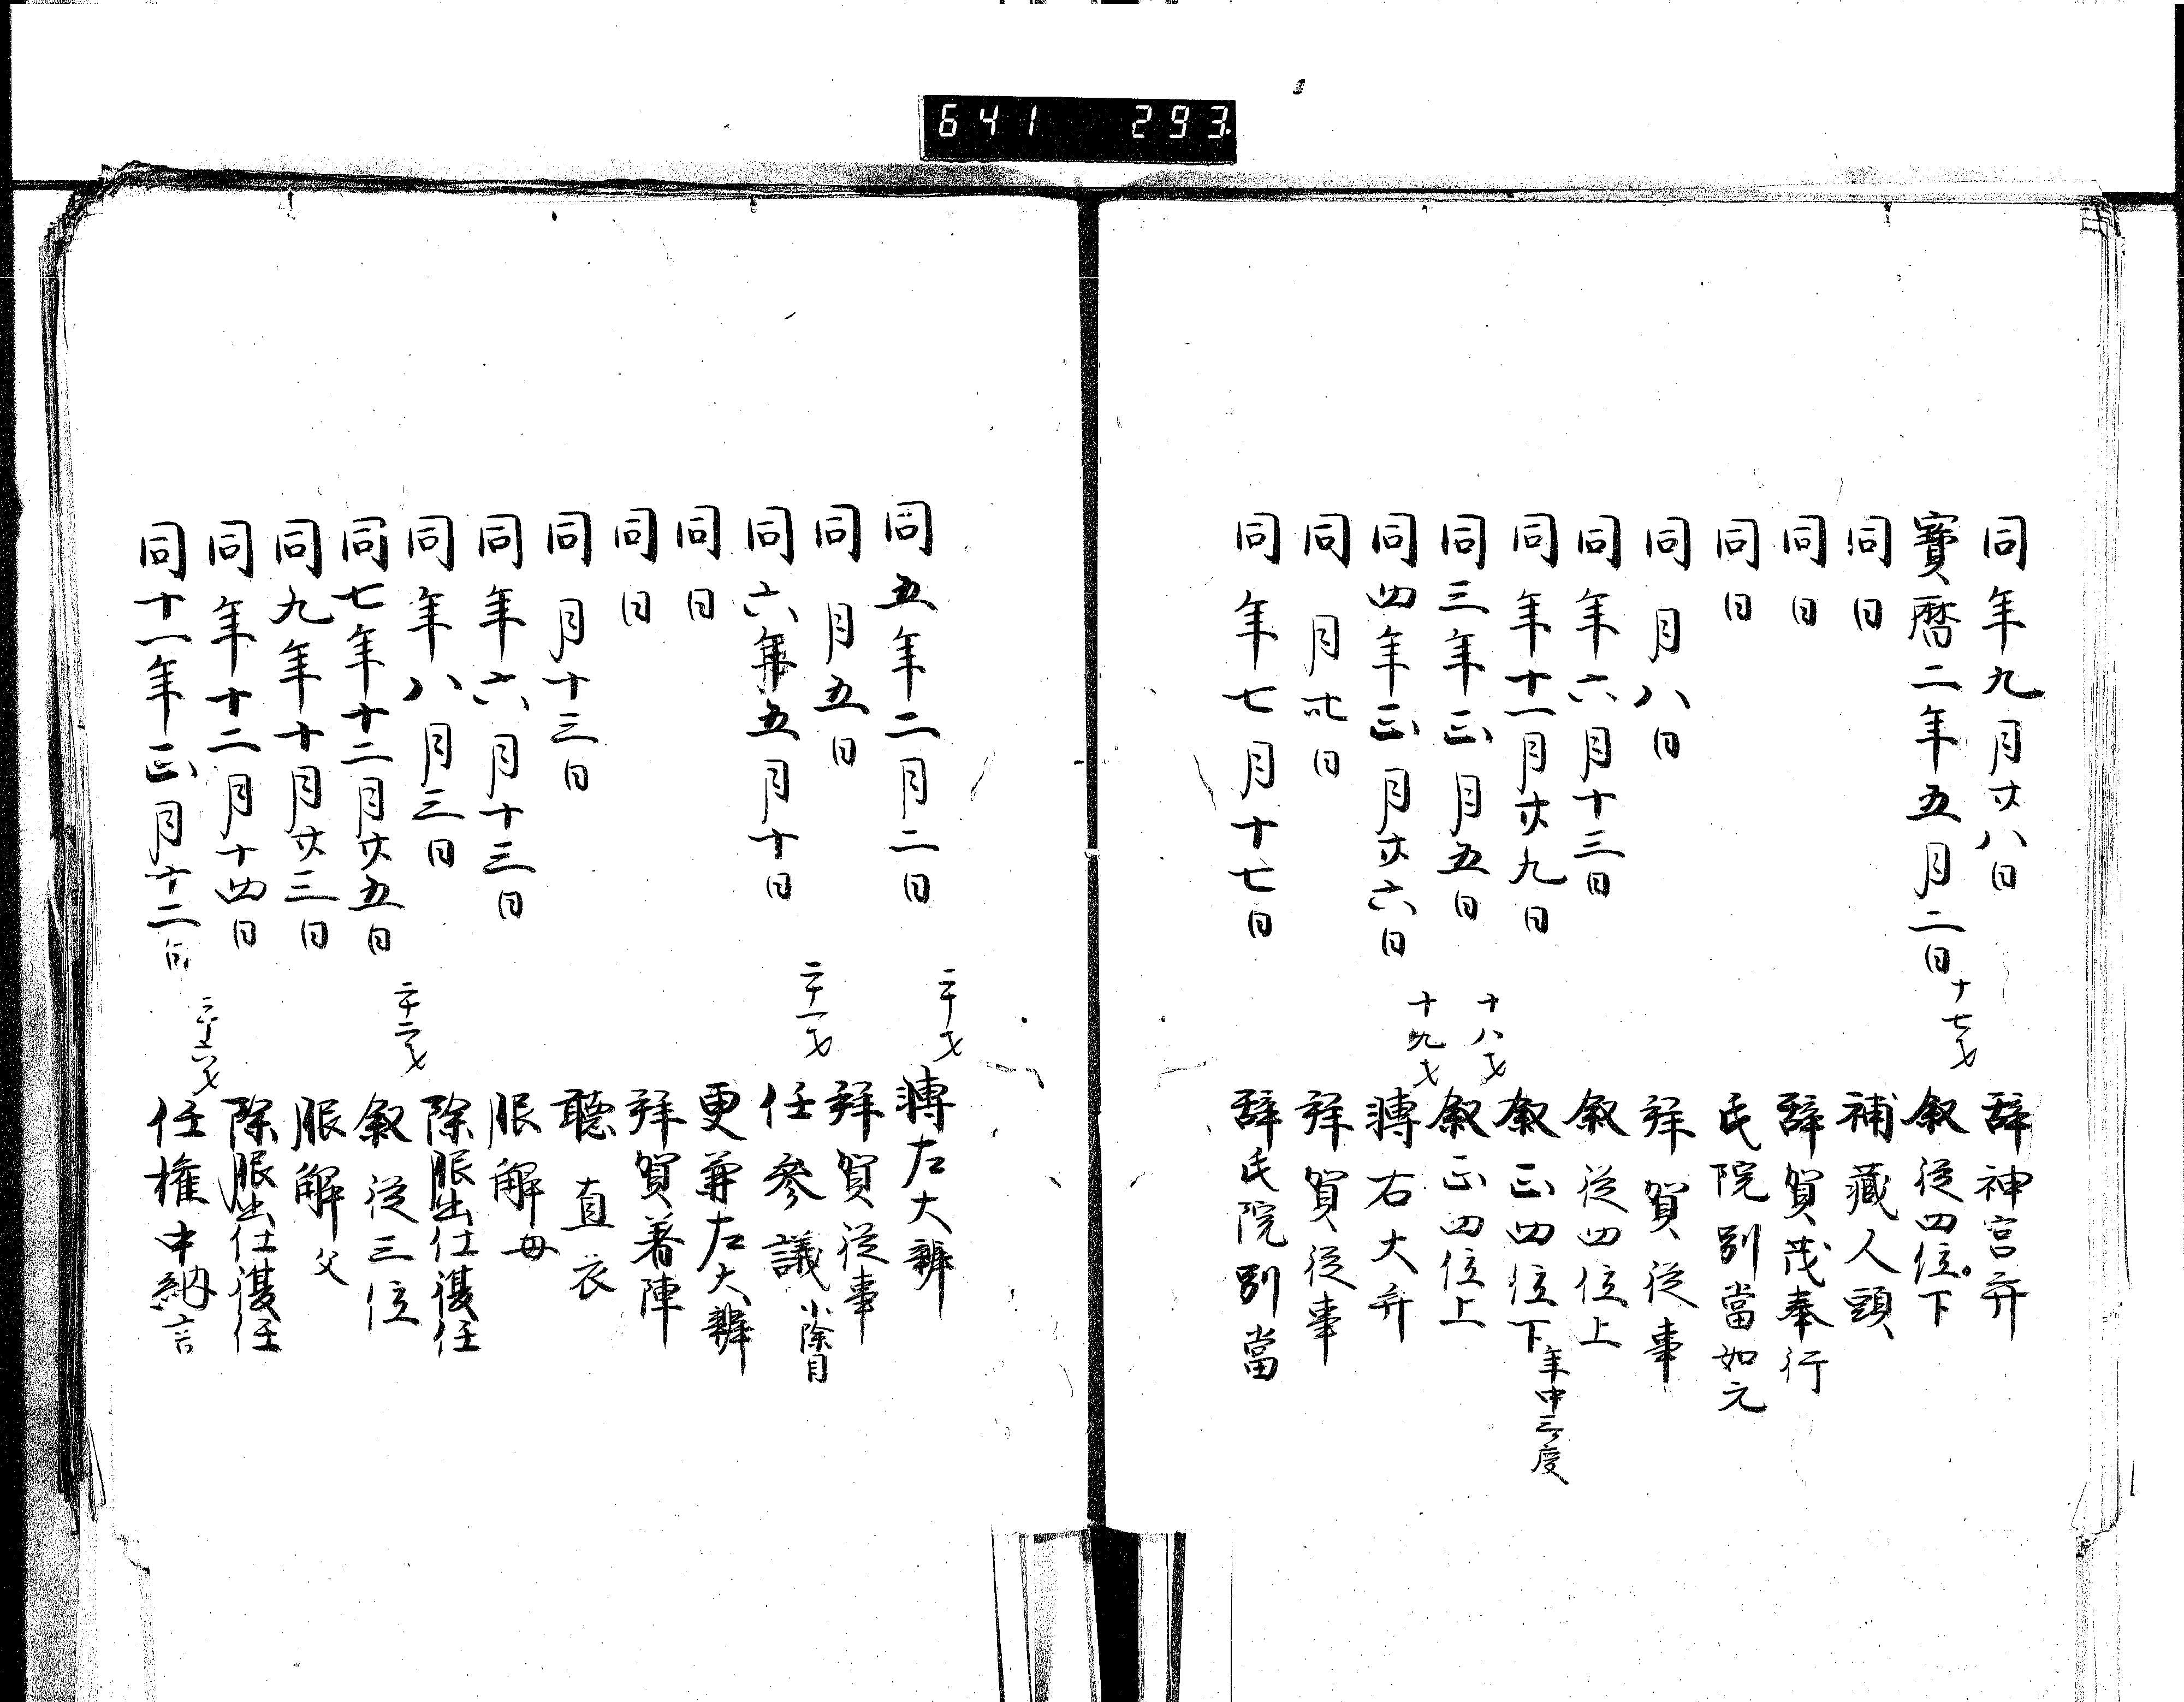 641 293
同年九月廿八日 辞神宮弁
寳暦二年五月二日 十七才 叙従四位下
同日 補藏人頭
同日 辞賀茂奉行
同日 氏院別當如元
同月八日 拜賀従事
同年六月十三日 叙従四位上
同年十一月廿九日 叙正四位下 年中三度
同三年正月五日 十八才 叙正四位上
同四年正月廿六日 十九才 轉右大弁
同月廿七日 拜賀従事
同年七月十七日 辞氏院別當
同五年二月二日 二十才 轉左大辨
同月五日 拜賀従事
同六年五月十日 二十一才 任参議 小除目
同日 更兼左大辨
同日 拜賀著陣
同月十三日 聴直衣
同年六月十三日 服解母
同年八月三日 除服出仕復任
同七年十二月廿五日 二十二才 叙従三位
同九年十月廿三日 服解父
同年十二月十四日 除服出仕復任
同十一年正月十二日 二十六才 任權中納言